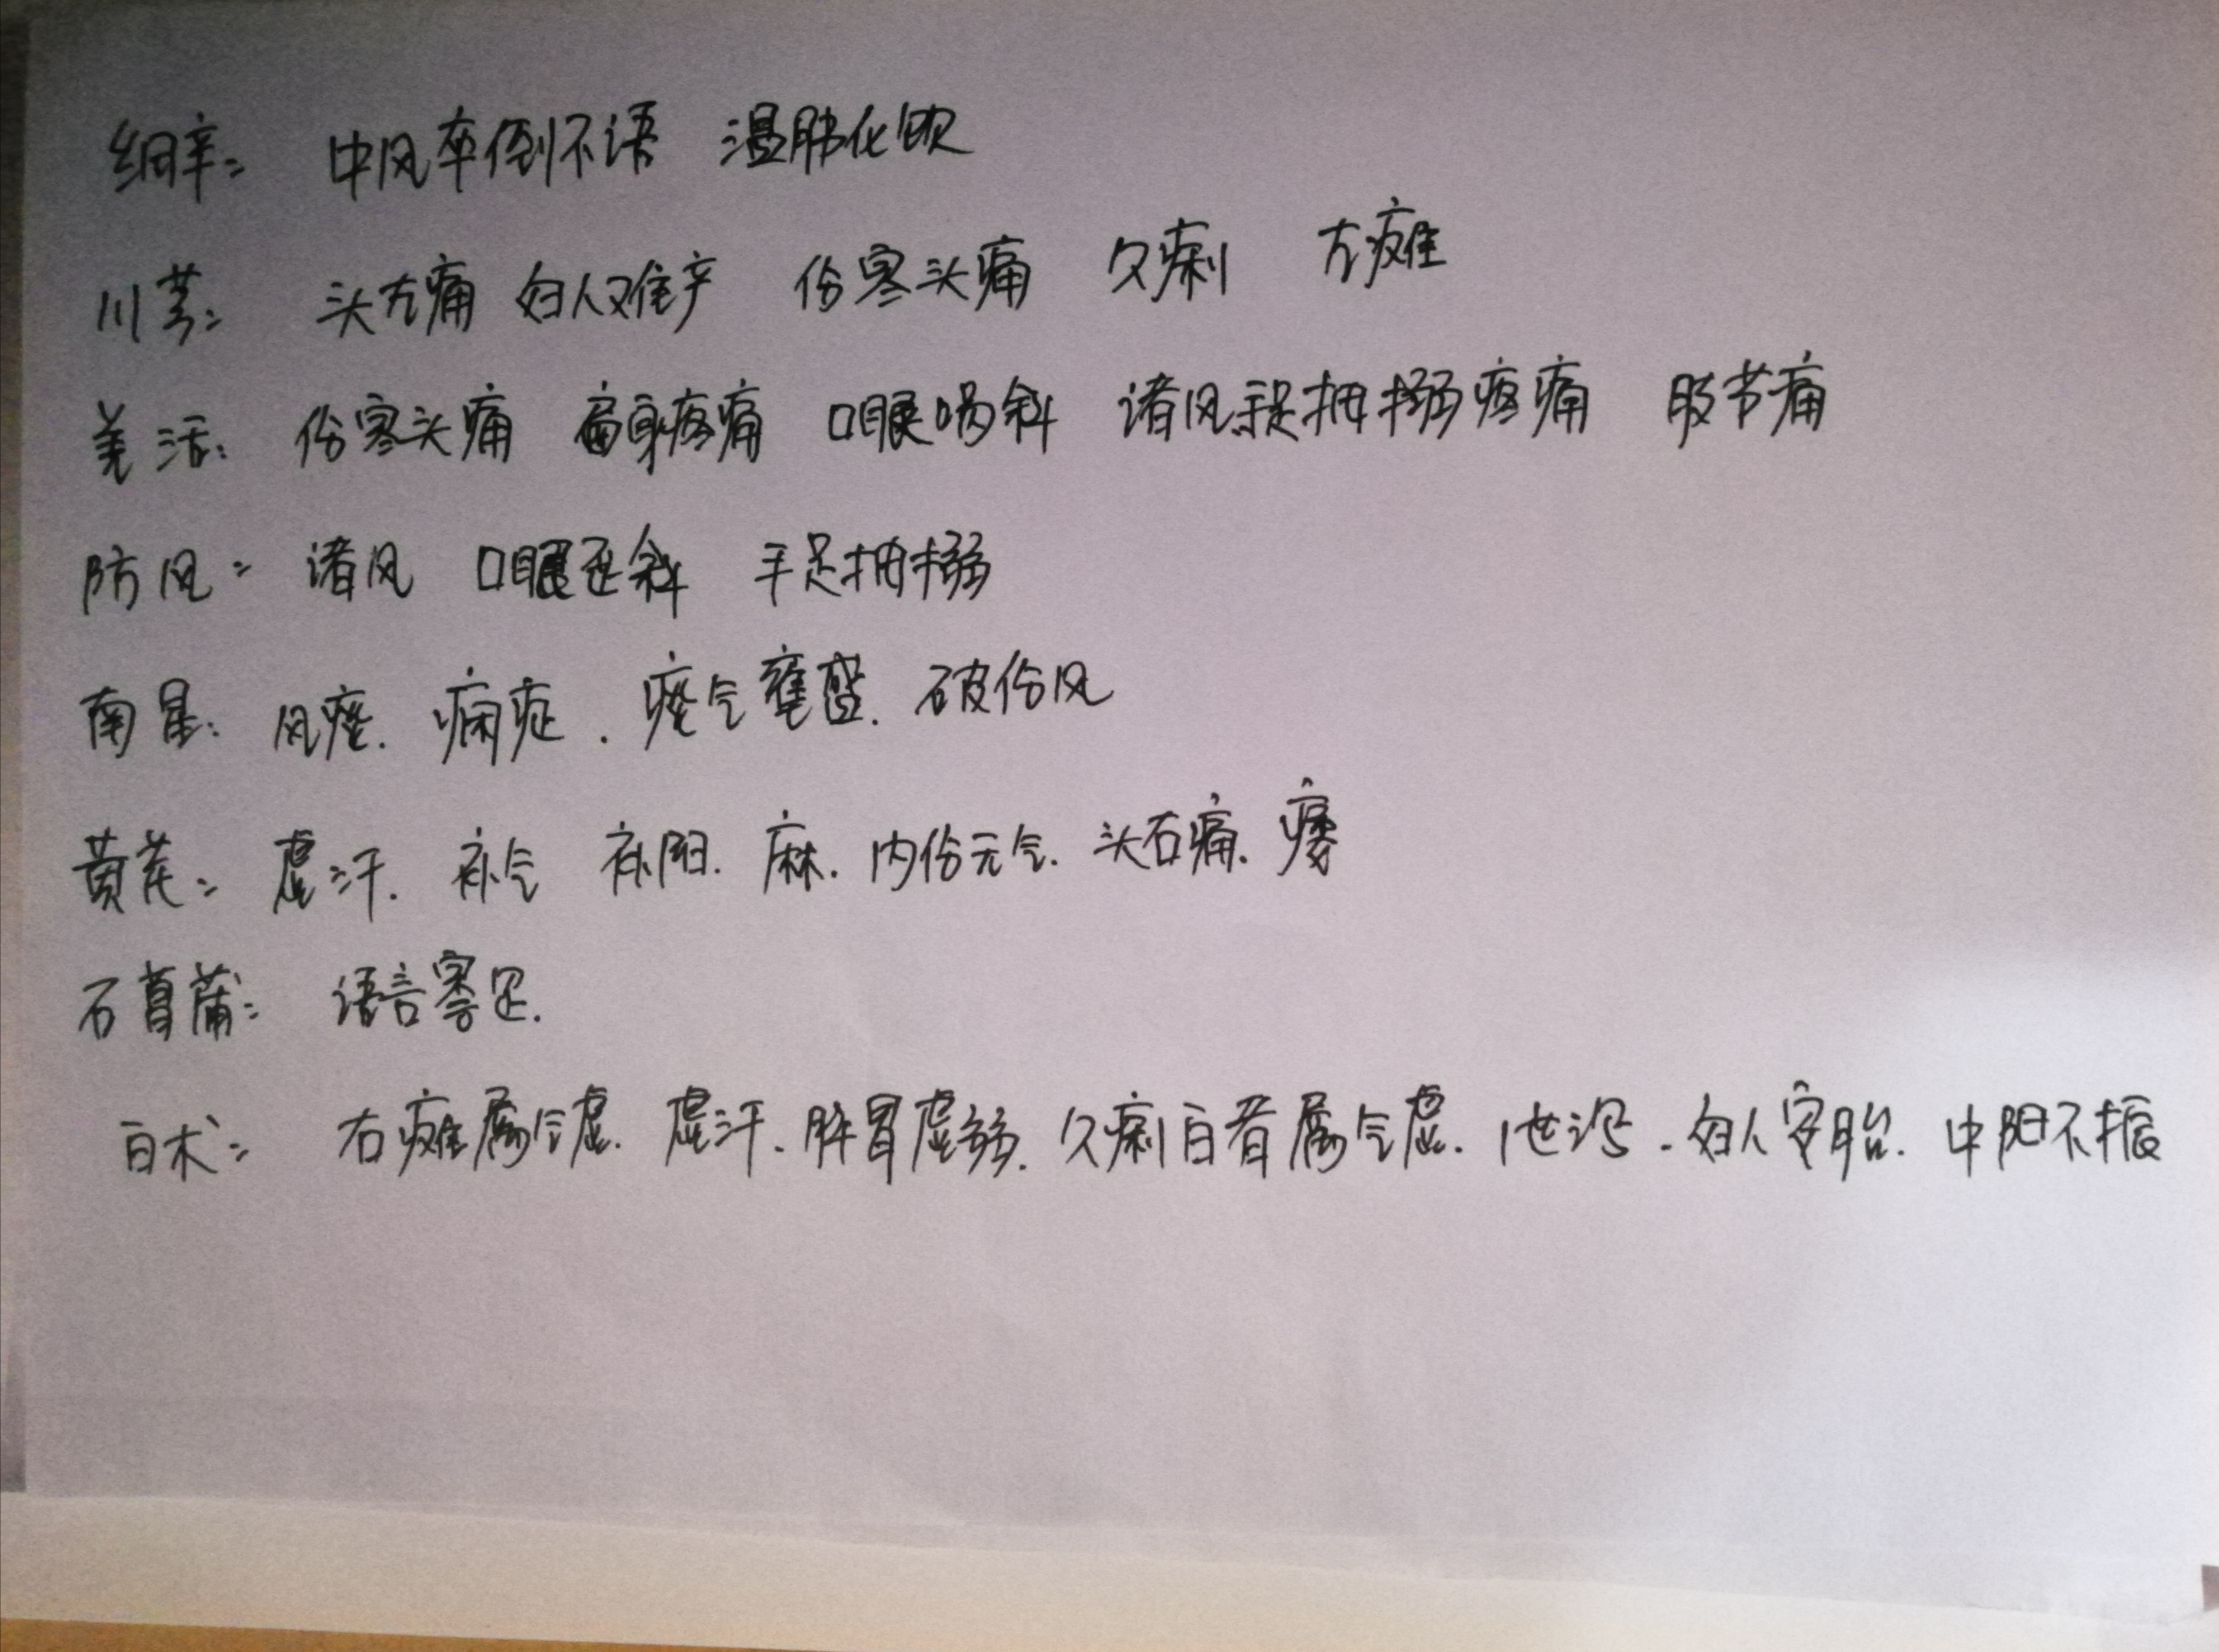 细辛: 中风卒倒不语 温肺化饮
川芎: 头左痛 妇人难产 伤寒头痛 久痢 左瘫
羌活: 伤寒头痛 扁身疼痛 口眼㖞斜 诸风手足抽搦疼痛 肢节痛
防风: 诸风 口眼歪斜 手足抽搦
南星: 风痰. 痫症. 痰气壅盛. 破伤风
黄芪: 虚汗. 补气 补阳. 麻. 内伤元气. 头右痛. 痿
石菖蒲: 语言蹇涩.
白术: 右瘫属气虚. 虚汗. 脾胃虚弱. 久痢白者属气虚. 泄泻. 妇人安胎. 中阳不振